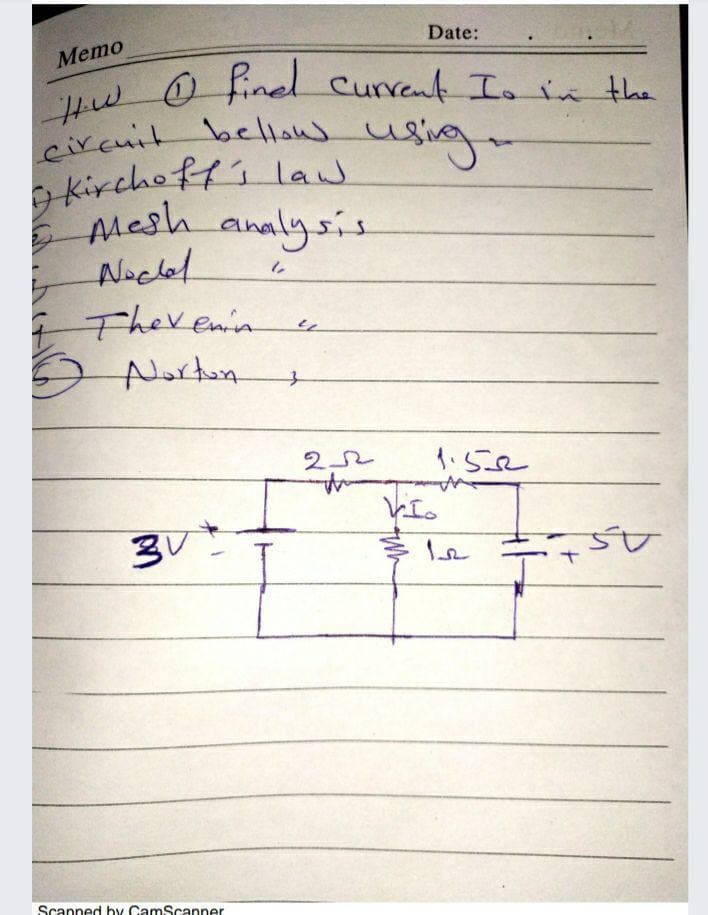 Memo
Date: . .
H.W ① find current Io in the
circuit bellow using
1) Kirchoff's law
2 Mesh analysis
3 Nodal "
4 Thevenin "
5 Norton
2Ω 1.5Ω
Io
3V + - 1Ω - + 5V
Scanned by CamScanner